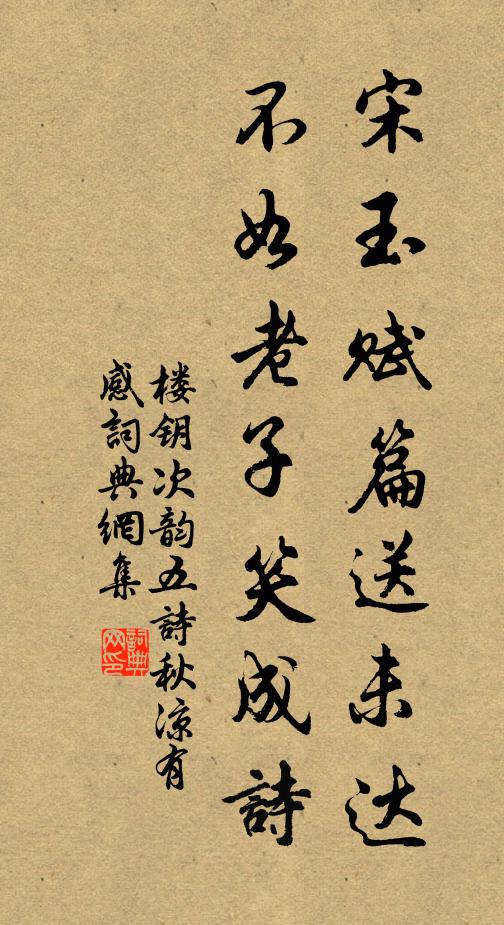 宋玉赋篇送未达
不如老子笑成詩
楼钥次韵五詩秋凉有
感詞典網集
詞典
网印